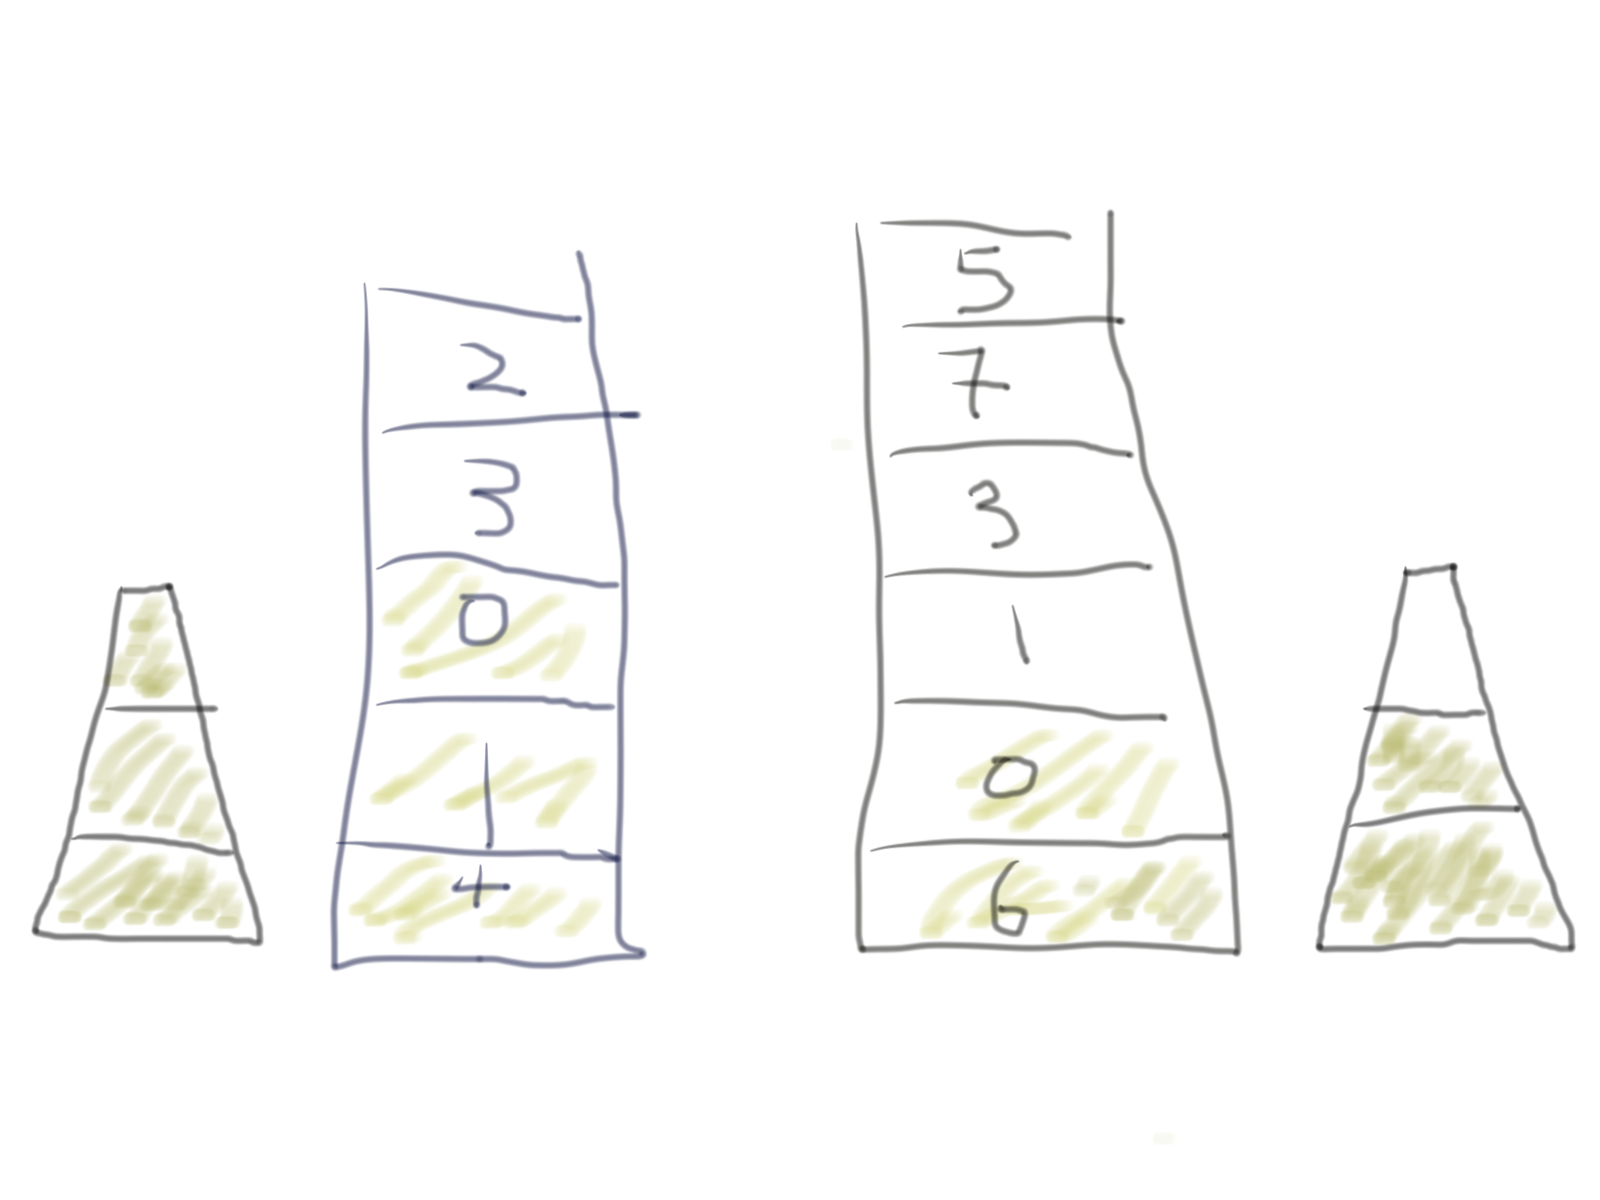 2
3
0
1
4
5
7
3
1
0
6